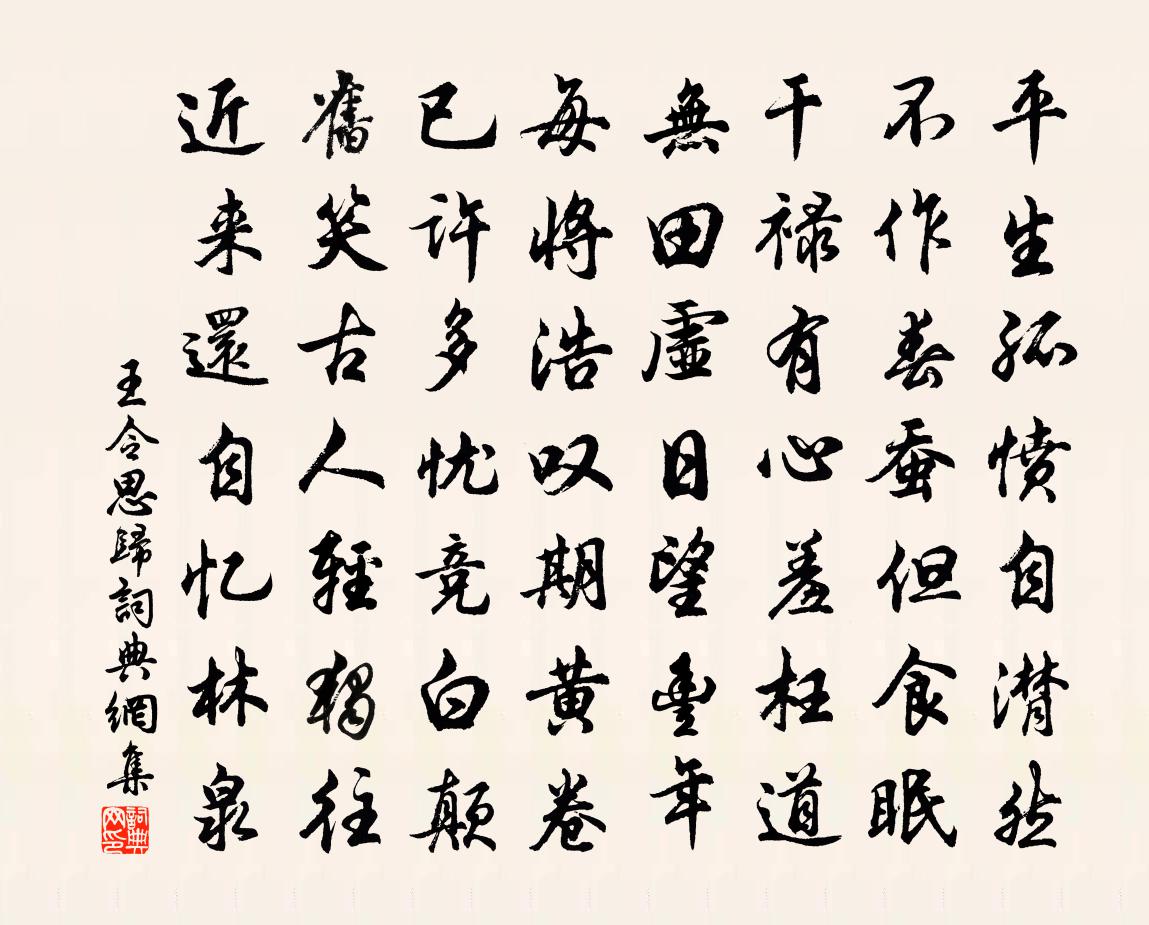 平生孤愤自潸然
不作春蚕但食眠
干禄有心羞枉道
無田虛日望豐年
每將浩叹期黄卷
已许多忧竞白颠
舊笑古人輕獨往
近来還自忆林泉
王令思歸詞典網集
詞典网印